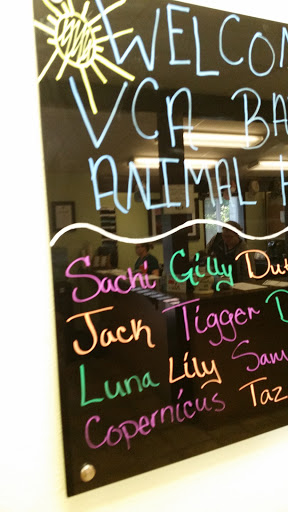 WELCOM
VCA BA
ANIMAL H
Sachi Gilly Du
Jack Tigger D
Luna Lily Sam
Copernicus Taz